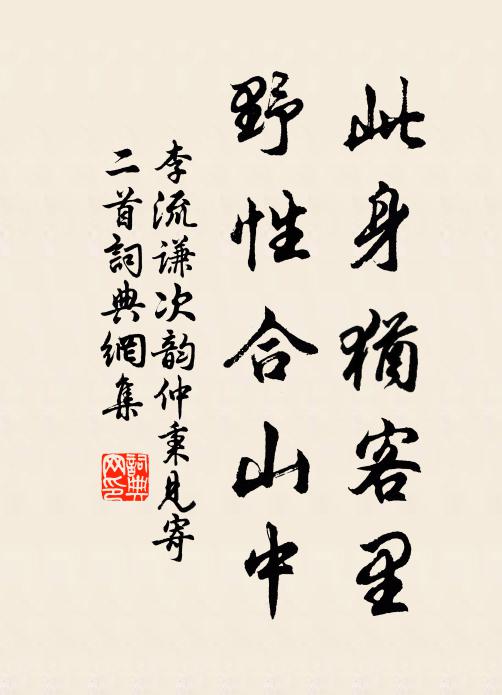 此身猶客里
野性合山中
李流谦次韵仲秉見寄
二首詞典網集
詞典網印